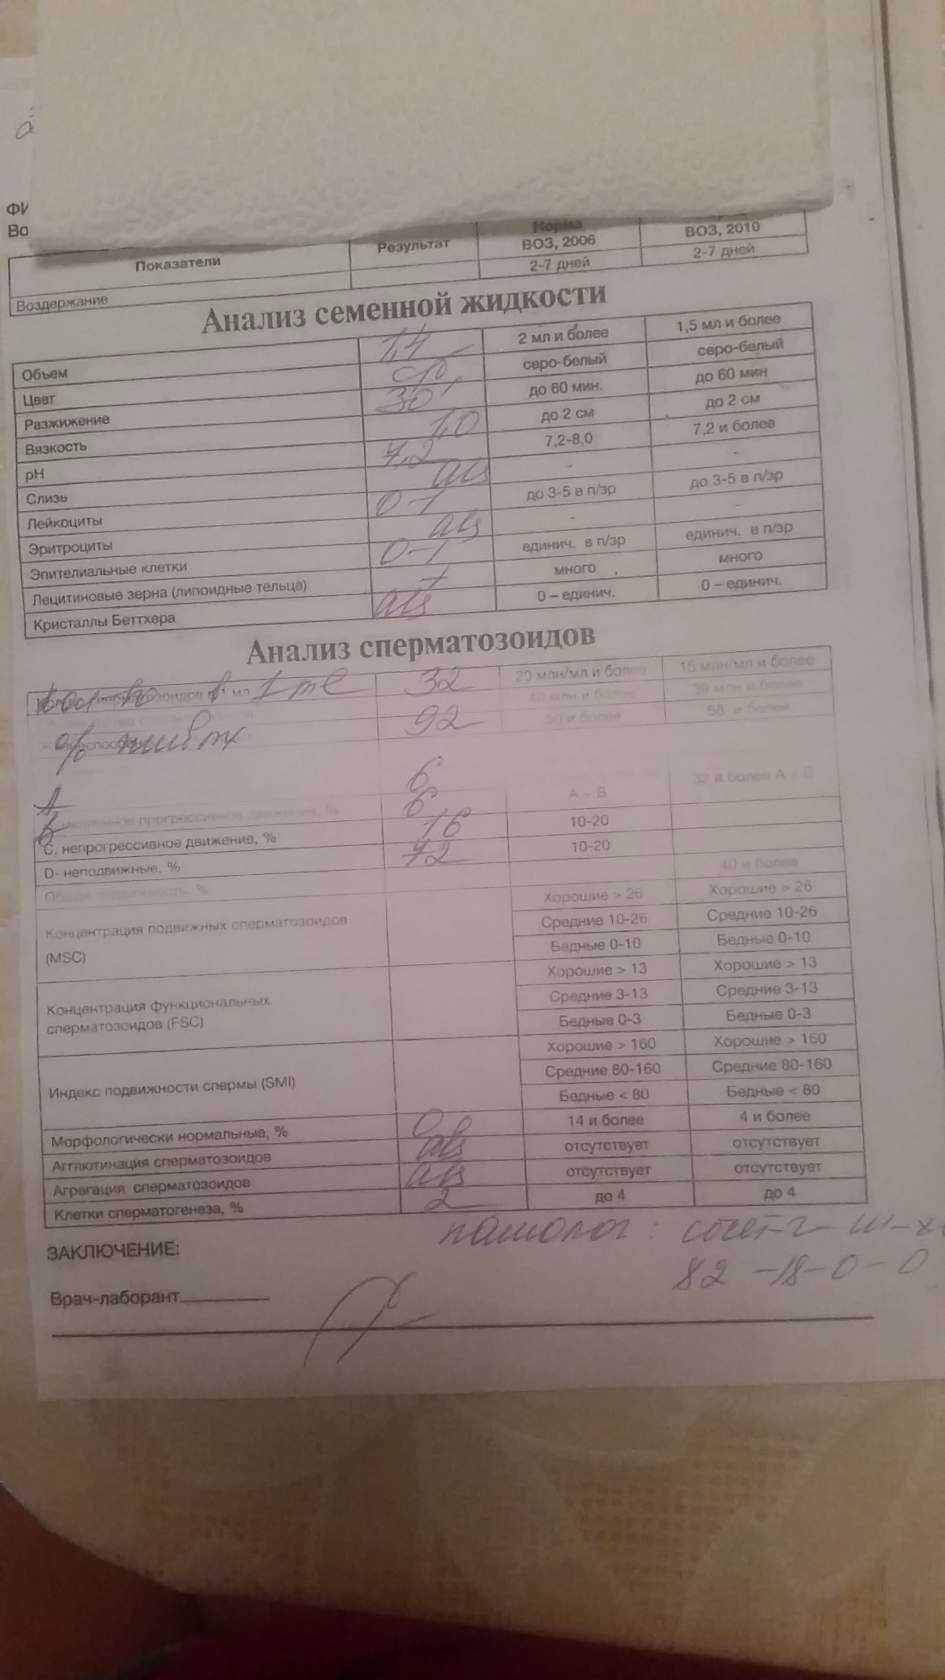 ФИ
Во
Показатели Результат Норма ВОЗ, 2006 ВОЗ, 2010
Воздержание 2-7 дней 2-7 дней
Анализ семенной жидкости
Объем 1,4 2 мл и более 1,5 мл и более
Цвет с/б серо-белый серо-белый
Разжижение 30' до 60 мин. до 60 мин
Вязкость 1,0 до 2 см до 2 см
pH 7,2 7,2-8,0 7,2 и более
Слизь abs - -
Лейкоциты 0-1 до 3-5 в п/зр до 3-5 в п/зр
Эритроциты abs - -
Эпителиальные клетки 0-1 единич. в п/зр единич. в п/зр
Лецитиновые зерна (липоидные тельца) + много много
Кристаллы Беттхера abs 0 – единич. 0 – единич.
Анализ сперматозоидов
кол-во в 1 мл 32 20 млн/мл и более 15 млн/мл и более
40 млн и более 39 млн и более
% живых 92 50 и более 58 и более
A 6 32 и более A + B
B прогрессивное движение, % 6 A – B
C, непрогрессивное движение, % 16 10-20
D- неподвижные, % 72 10-20
Общая подвижность, % 40 и более
Концентрация подвижных сперматозоидов (MSC) Хорошие > 26 Хорошие > 26
Средние 10-26 Средние 10-26
Бедные 0-10 Бедные 0-10
Концентрация функциональных сперматозоидов (FSC) Хорошие > 13 Хорошие > 13
Средние 3-13 Средние 3-13
Бедные 0-3 Бедные 0-3
Индекс подвижности спермы (SMI) Хорошие > 160 Хорошие > 160
Средние 80-160 Средние 80-160
Бедные < 80 Бедные < 80
Морфологически нормальные, % 14 и более 4 и более
Агглютинация сперматозоидов abs отсутствует отсутствует
Агрегация сперматозоидов abs отсутствует отсутствует
Клетки сперматогенеза, % 2 до 4 до 4
ЗАКЛЮЧЕНИЕ: патолог: сочет-г-ш-х
82 -18-0-0
Врач-лаборант